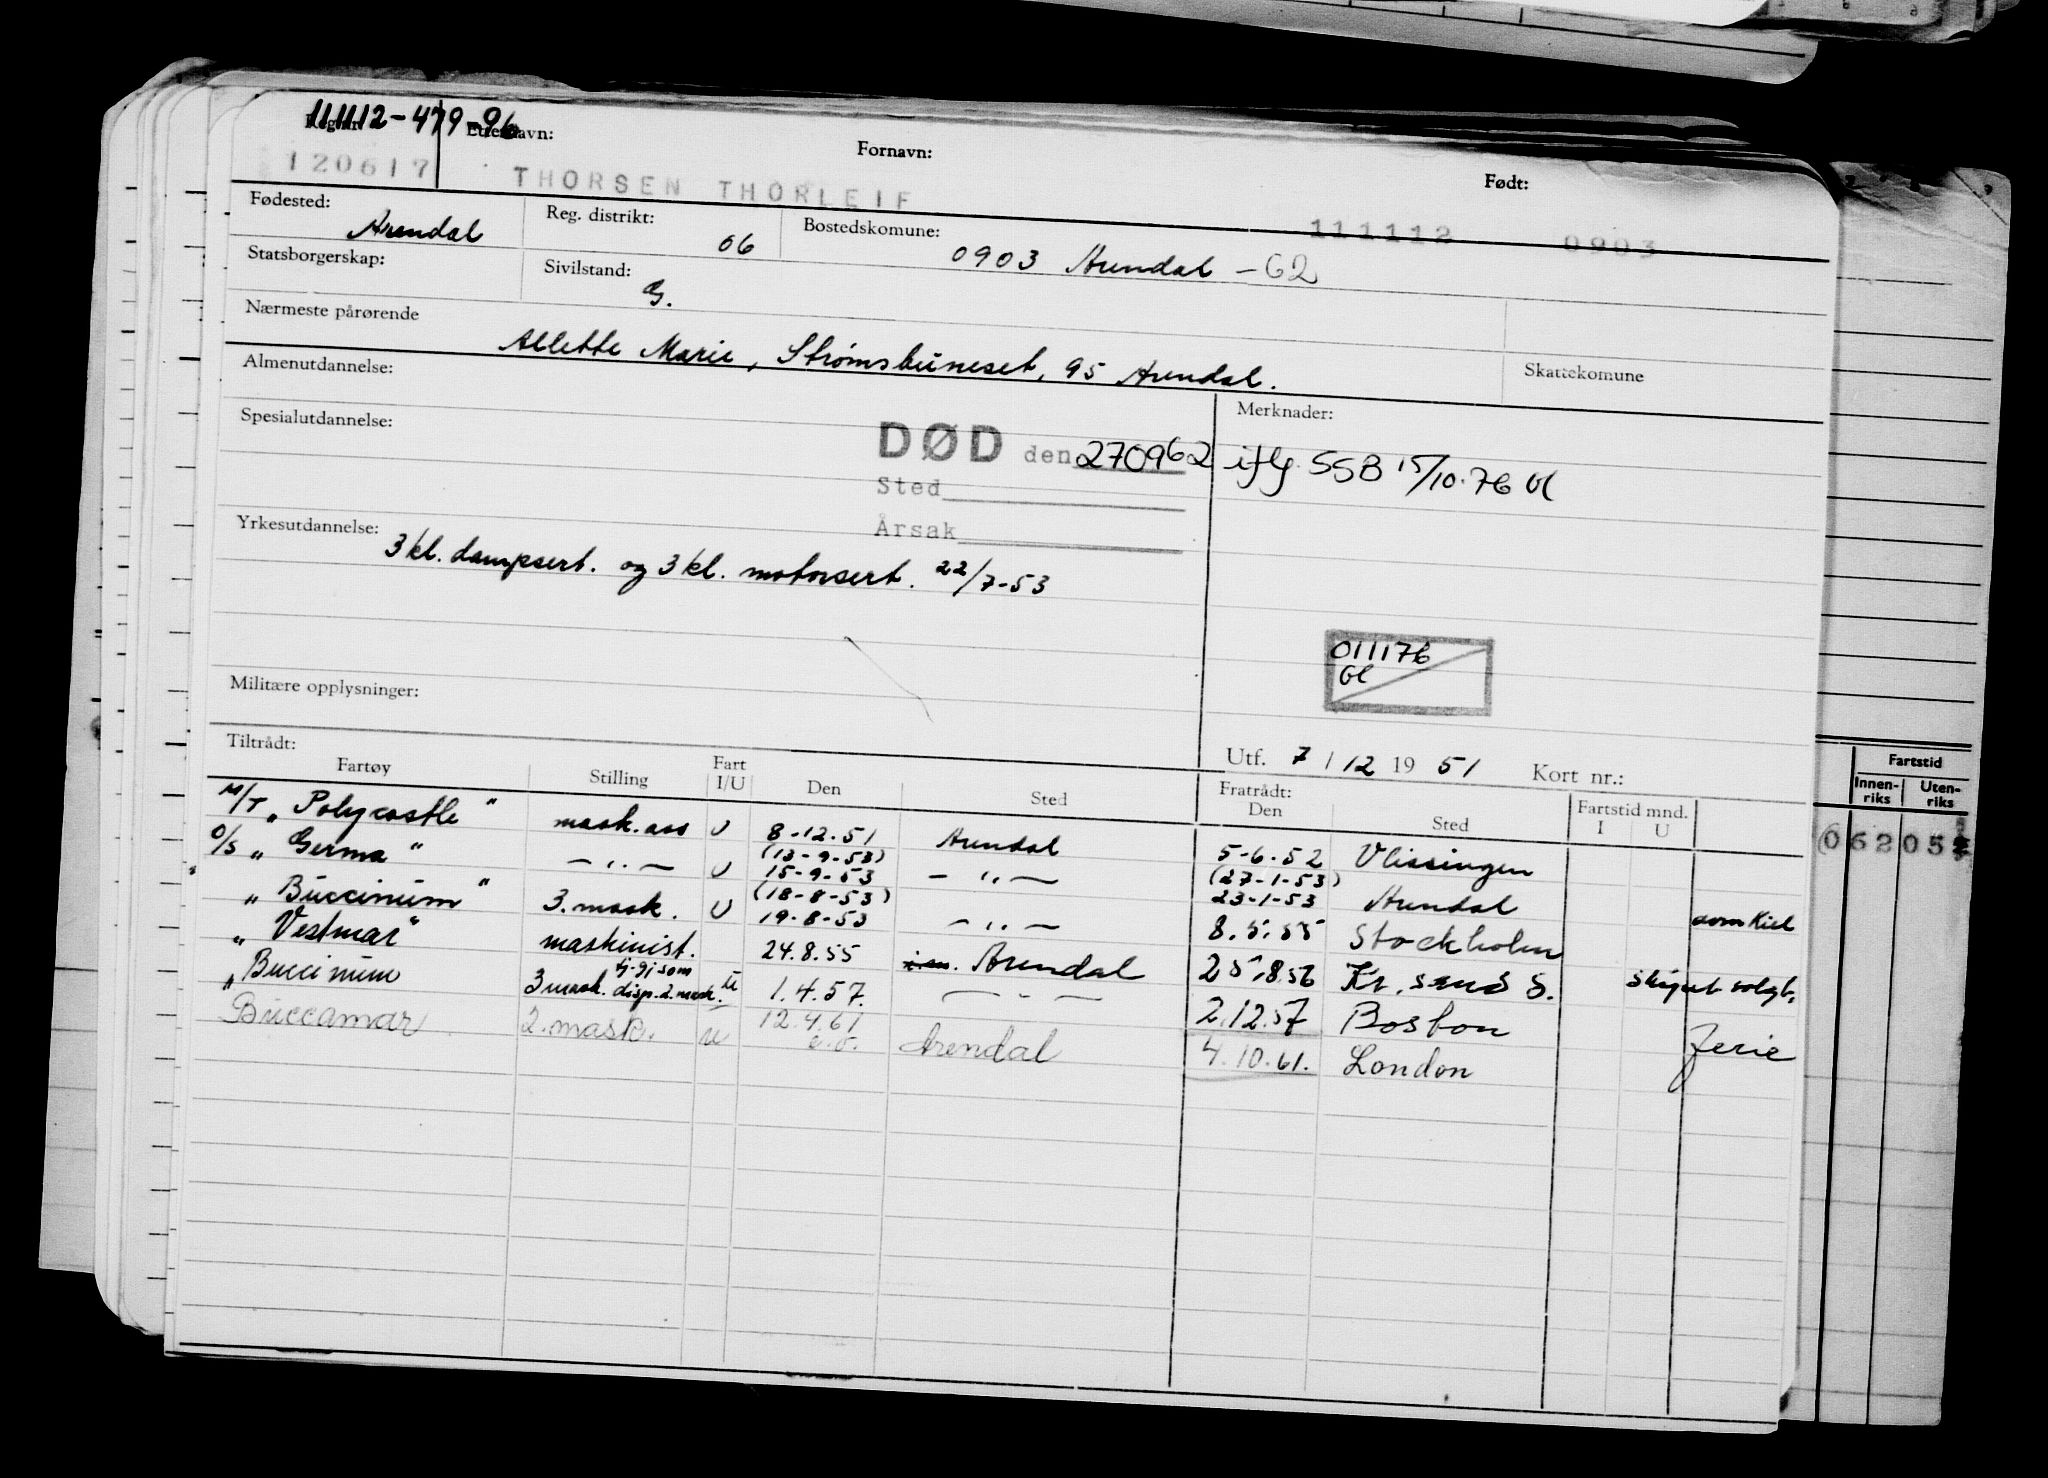 111112-479-96
Reg.nr. Etternavn: Fornavn: Født:
120617 THORSEN THORLEIF 111112 0903
Fødested: Arendal Reg. distrikt: 06 Bostedskomune: 0903 Arendal - 62
Statsborgerskap: Sivilstand: G.
Nærmeste pårørende Allette Marie, Strømsbuneset, 95 Arendal.
Almenutdannelse: Skattekomune
Spesialutdannelse: Merknader:
DØD den 270962 iflg. SSB 15/10.76 Gl
Sted
Årsak
Yrkesutdannelse: 3 kl. dampsert. og 3 kl. motorsert. 22/7-53
011176
Gl
Militære opplysninger:
Utf. 7 / 12 19 51 Kort nr.:
Tiltrådt: Fratrådt:
Fartøy Stilling Fart I/U Den Sted Den Sted Fartstid mnd. I U
M/T „Polycastle" mask.ass U 8-12-51 Arendal 5-6-52 Vlissingen
D/S „Germa" - „ - U (13-9-53) 15-9-53 - „ - (27-1-53) 23-1-53 Arendal
„Buccinum" 3.mask. U (18-8-53) 19-8-53 - „ - 8.5.55 Stockholm som Kiel
„Vestmar" maskinist. 24.8.55 Arendal 25.8.56 Kr. sand S. Skipet solgt.
„Buccinum 3 mask. tj.gj som disp. 2. mask. U 1.4.57. - „ - 2.12.57 Boston Ferie
Buccamar 2.mask. u 12.4.61 e.o. Arendal 4.10.61. London
Fartstid
Innenriks Utenriks
062052